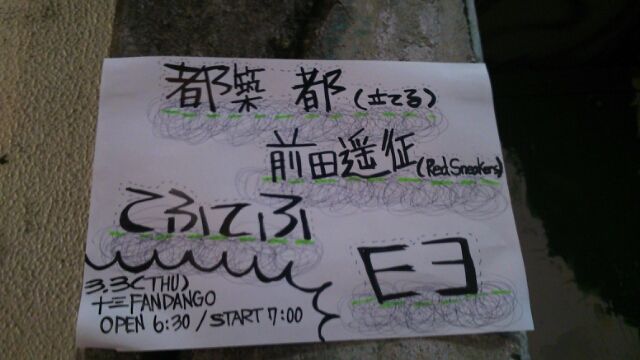 都築 都 (立てる)
前田遥征 (Red Sneakers)
てふてふ
Eヨ
3.3(THU)
十三FANDANGO
OPEN 6:30 / START 7:00